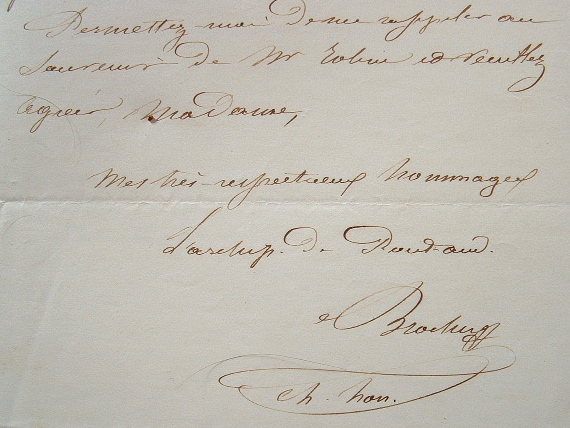 Permettez moi De me rappeler au
Souvenir De Mr et veuillez
agréer, Madame,
Mes très-respectueux hommages
L'archip. De
ch. hon.